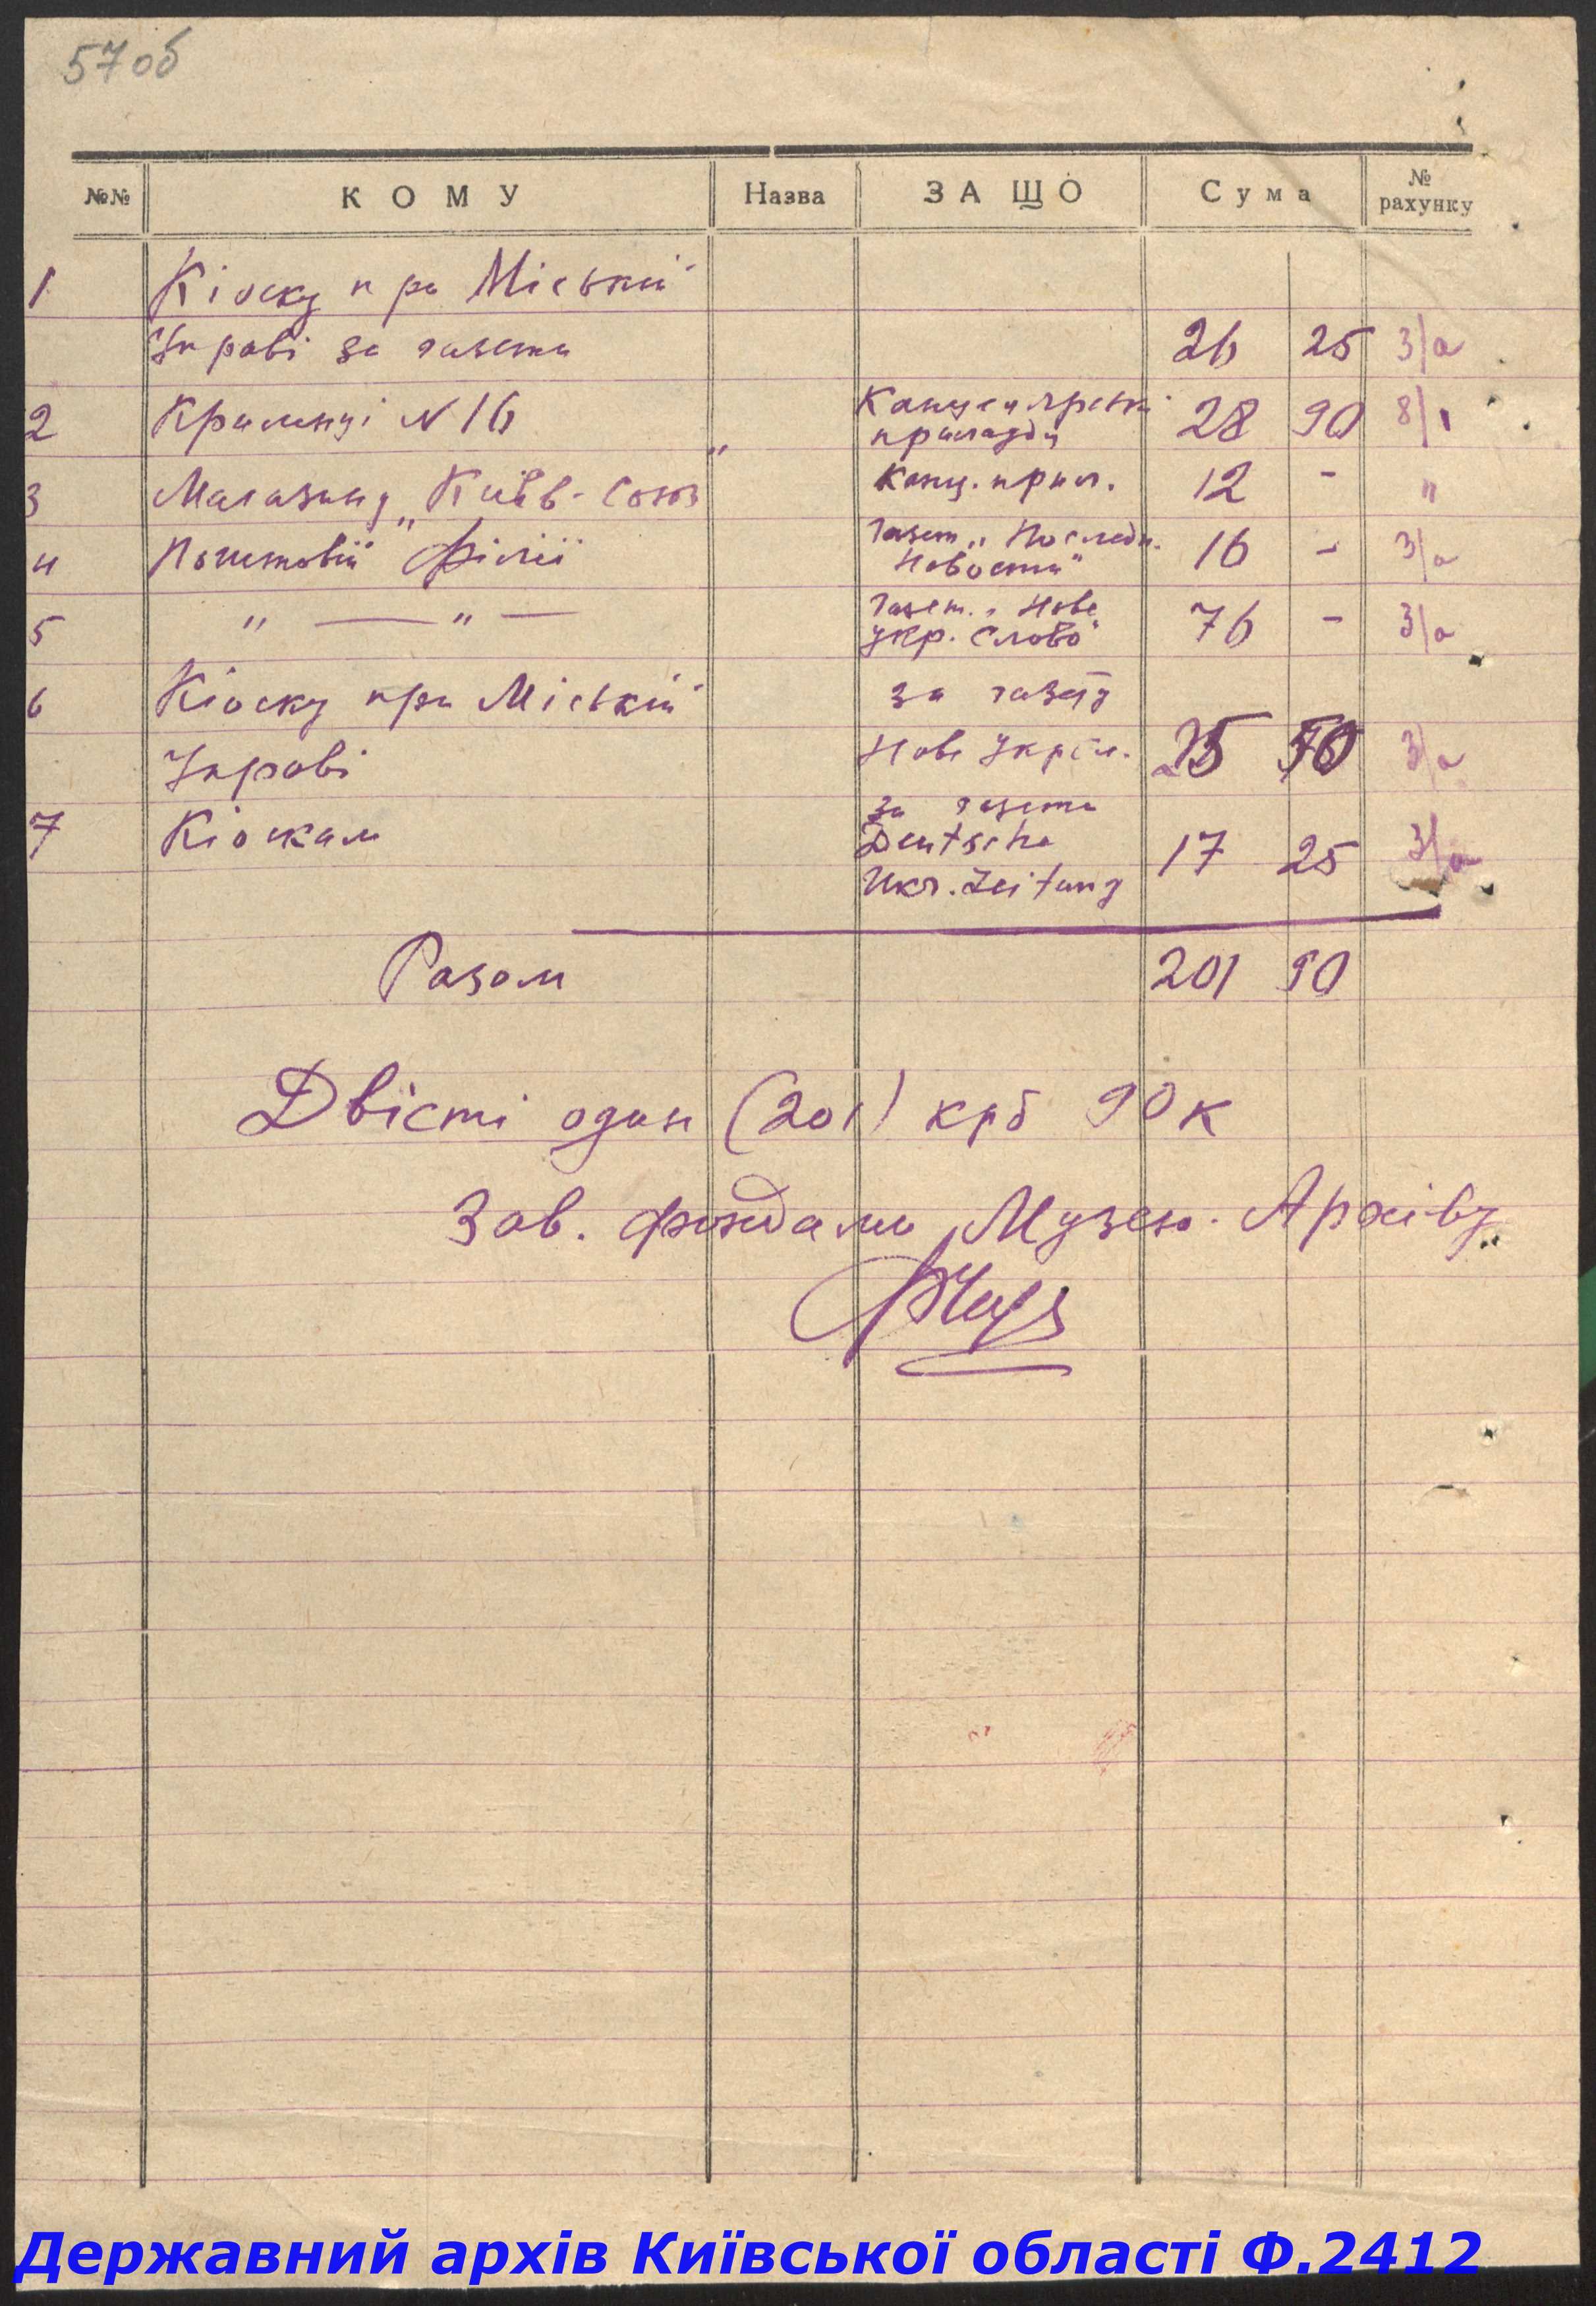 57об
№№ КОМУ Назва ЗА ЩО Сума № рахунку
1 Кіоску при Міській
Управі за газети 26 25 3/а
2 Крамниці N 16 Канцелярські приладди 28 90 8/1
3 Магазину „Київ-Союз" Канц. прил. 12 - "
4 Поштовій Філії Газет „Последн. Новости" 16 - 3/а
5 " — " — Газет. „Нове укр. Слово" 76 - 3/а
6 Кіоску при Міській за газету
Управі Нове Укр Сл. 25 50 3/а
7 Кіоскам за газети
Deutsche 17 25 3/а
Ukr. Zeitung
Разом 201 90
Двісті один (201) крб 90 к
Зав. фондами Музею-Архіву
Державний архів Київської області Ф.2412